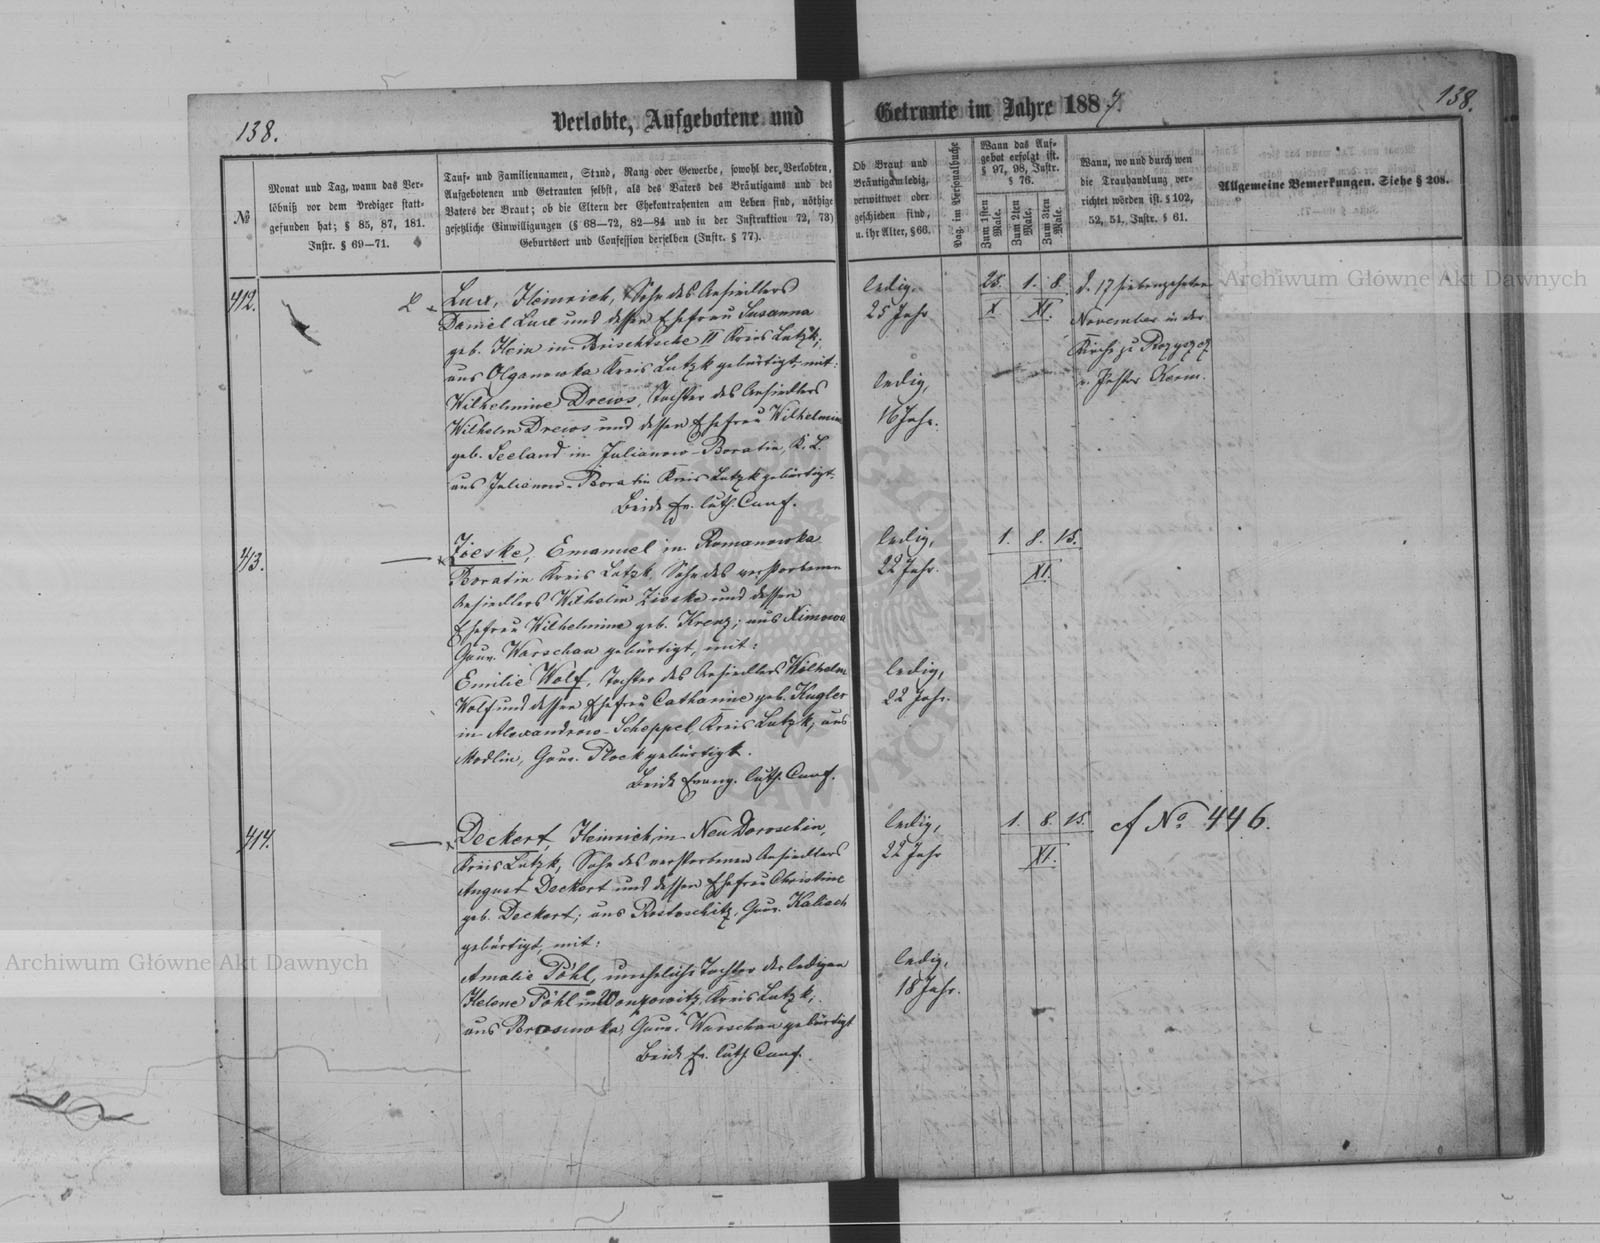 138.
Verlobte, Aufgebotene und
Getraute im Jahre 1887.
138.
№
Monat und Tag, wann das Ver-
löbniß vor dem Prediger statt-
gefunden hat; § 85, 87, 181.
Instr. § 69—71.
Tauf- und Familiennamen, Stand, Rang oder Gewerbe, sowohl der Verlobten,
Aufgebotenen und Getrauten selbst, als des Vaters des Bräutigams und des
Vaters der Braut; ob die Eltern der Ehekontrahenten am Leben sind, nöthige
gesetzliche Einwilligungen (§ 68—72, 82—84 und in der Instruktion 72, 73)
Geburtsort und Confession derselben (Instr. § 77).
Ob Braut und
Bräutigam ledig,
verwittwet oder
geschieden sind,
u. ihr Alter, § 66.
Pag. im Personalbuche
Wann das Auf-
gebot erfolgt ist.
§ 97, 98, Instr.
§ 76.
Zum 1sten Male.
Zum 2ten Male.
Zum 3ten Male.
Wann, wo und durch wen
die Trauhandlung ver-
richtet worden ist. § 102,
52, 54, Instr. § 61.
Allgemeine Bemerkungen. Siehe § 208.
412.
Lux, Heinrich, Sohn des Ansiedlers
Daniel Lux und dessen Ehefrau Susanna
geb. Hein in Brischtsche II Kreis Lutzk,
aus Olganowka Kreis Lutzk gebürtigt, mit:
Wilhelmine Drews, Tochter des Ansiedlers
Wilhelm Drews und dessen Ehefrau Wilhelmine
geb. Seeland in Julianow-Boratin, K. L.
aus Julianow-Boratin Kreis Lutzk gebürtigt.
Beide Ev. luth. Conf.
ledig,
25 Jahr
ledig,
16 Jahr.
25. 1. 8.
X XI.
d. 17 siebenzehnten
November in der
Kirche zu Rozyszcz
v. Pastor Kerm.
413.
Zieske, Emanuel in Romanowka
Boratin Kreis Lutzk, Sohn des verstorbenen
Ansiedlers Wilhelm Zieske und dessen
Ehefrau Wilhelmine geb. Krenz; aus
Gouv. Warschau gebürtigt, mit:
Emilie Wolf, Tochter des Ansiedlers Wilhelm
Wolf und dessen Ehefrau Catharine geb. Kugler
in Alexandrow-Scheppel, Kreis Lutzk, aus
Modlin, Gouv. Plock gebürtigt.
Beide Evang. luth. Conf.
ledig,
22 Jahr.
ledig,
22 Jahr.
1. 8. 15.
XI.
414.
Deckert, Heinrich, in Neu Doroschin,
Kreis Lutzk, Sohn des verstorbenen Ansiedlers
August Deckert und dessen Ehefrau Christine
geb. Deckert; aus Rostoschitz, Gouv. Kalisch
gebürtigt, mit:
Amalie Pöhl, uneheliche Tochter der ledigen
Helene Pöhl in Wonzowitz, Kreis Lutzk,
aus Gouv. Warschau gebürtigt
Beide Ev. luth. Conf.
ledig,
22 Jahr
ledig,
18 Jahr.
1. 8. 15.
XI.
cf № 446.
Archiwum Główne Akt Dawnych
Archiwum Główne Akt Dawnych